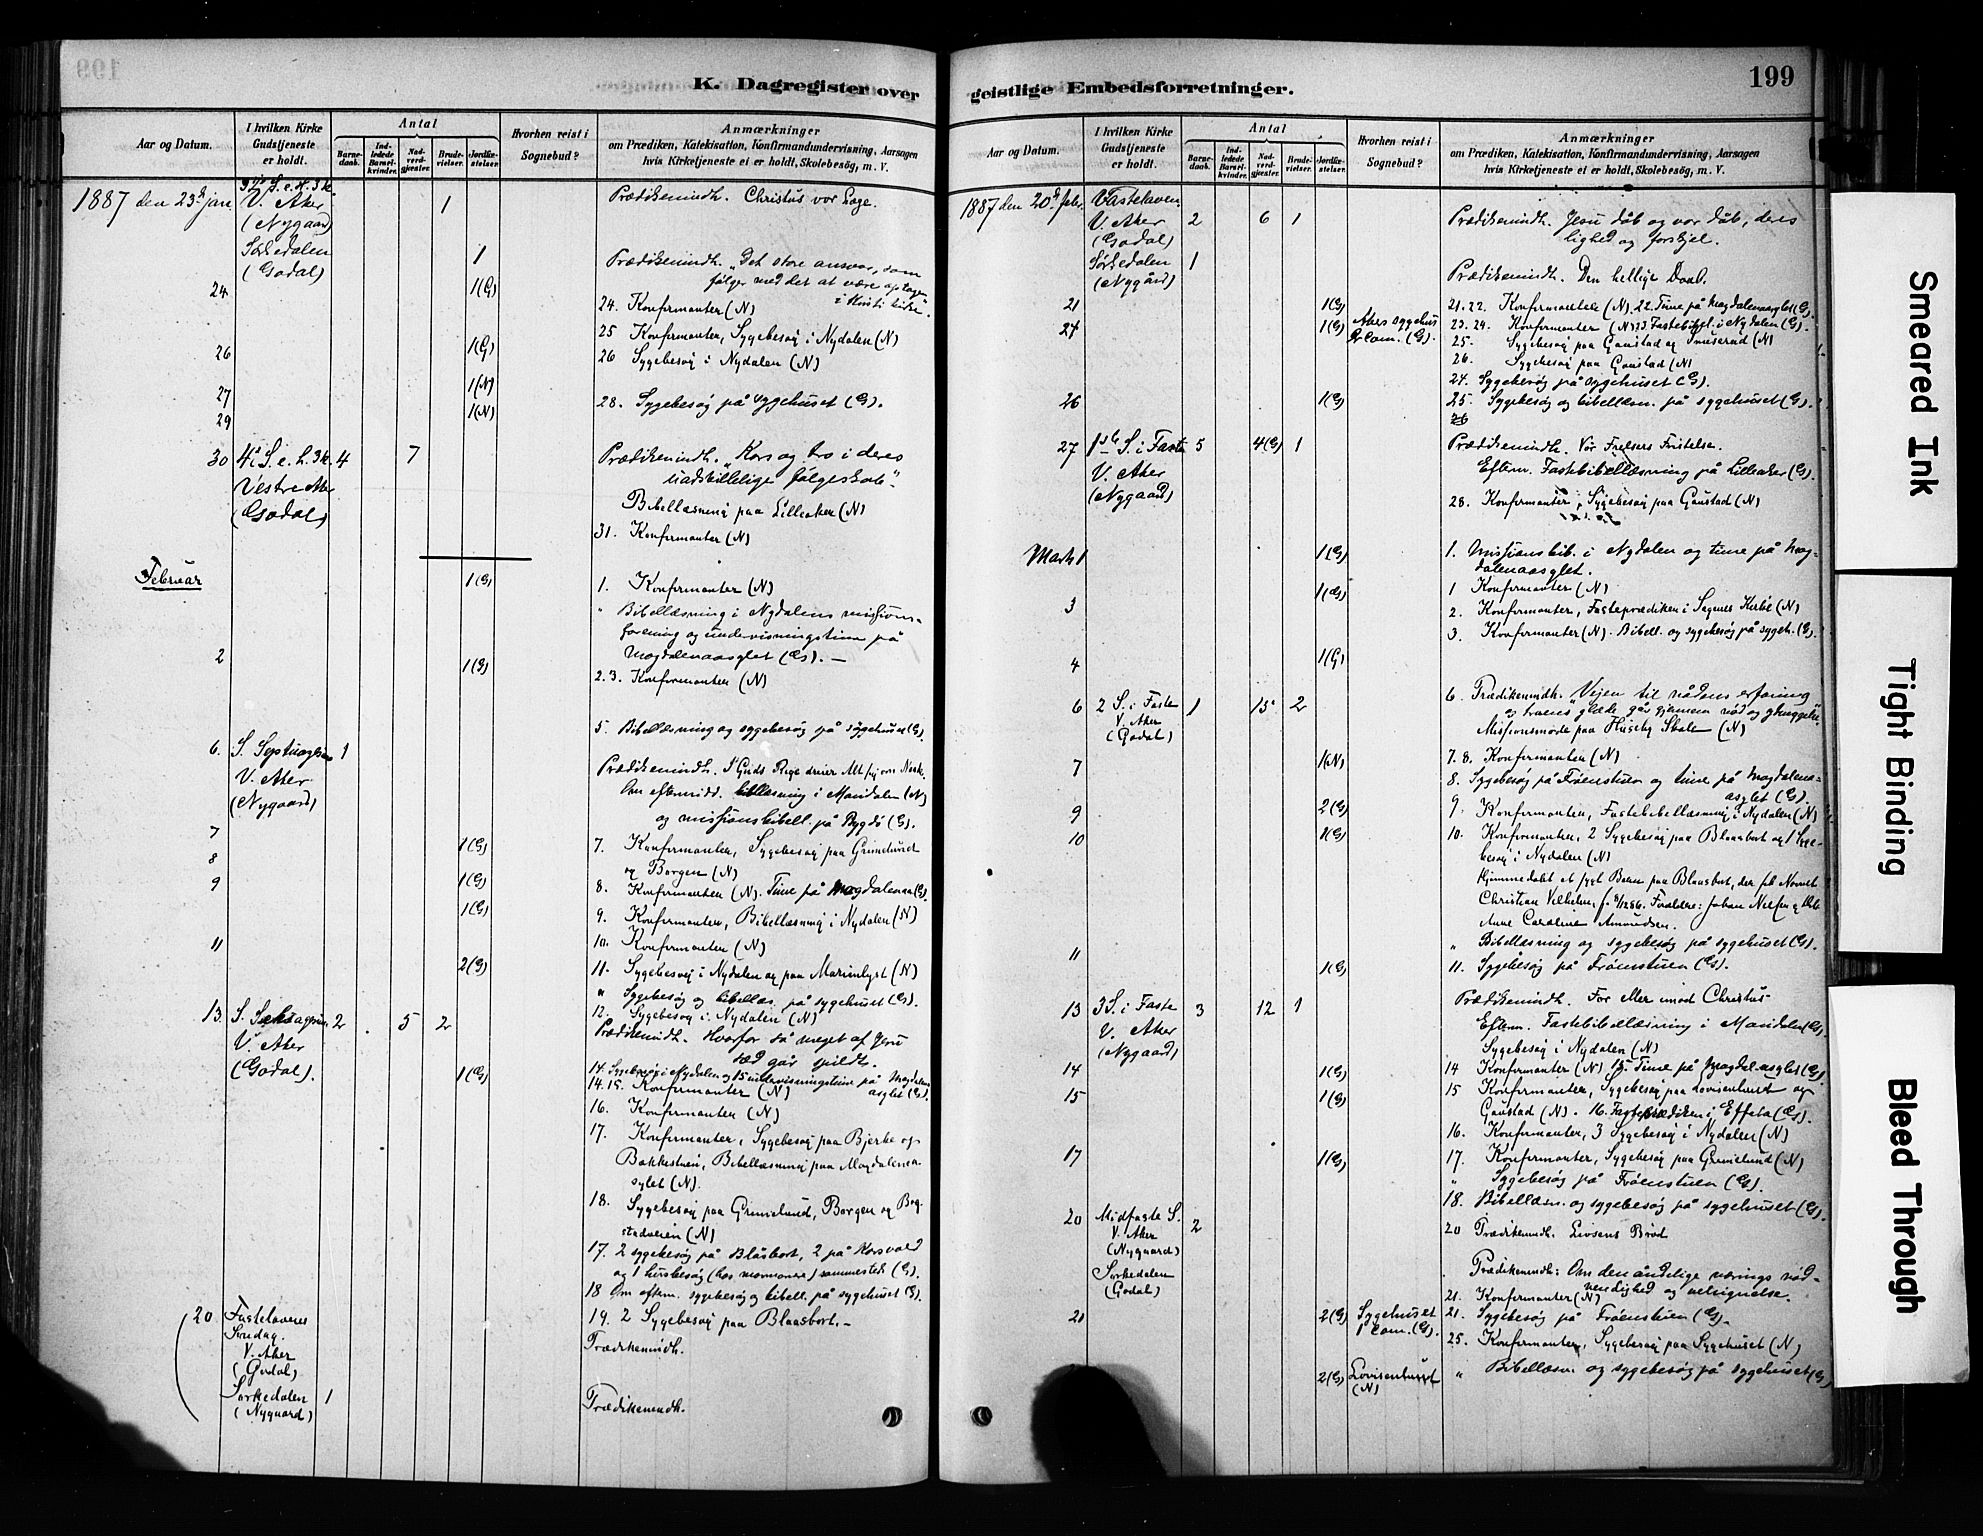 K. Dagregister over
Aar og Datum.
I hvilken Kirke Gudstjeneste er holdt.
Antal
Barnedaab.
Indledede Barselkvinder.
Nadverdgjester.
Brudevielser.
Jordfæstelser.
Hvorhen reist i Sognebud?
Anmærkninger
om Prædiken, Katekisation, Konfirmandundervisning, Aarsagen
hvis Kirketjeneste ei er holdt, Skolebesög, m. V.
1887 den 23d jan. V. Aker 1 Prædikenindh. Christus vor Læge.
(Nygaard)
Sørkedalen 1 Prædikenindh. „Det store ansvar, som
(Godal) følger med det at være optagen
24 1(G) i Kristi kirke".
24. Konfirmanter (N)
25 Konfirmanter, Sygebesøg i Nydalen (N)
26 1(G) 26 Sygebesøg i Nydalen (N)
27 1(N)
28. Sygebesøg på sygehuset (G).
29 1(N)
30 4 S. e. h. 3 k. 4 7 Prædikenindh. „Kors og tro i deres
Vestre Aker uadskillelige følgeskab".
(Godal) Bibellæsning paa Lilleaker (N)
31. Konfirmanter (N)
Februar 1(G) 1. Konfirmanter (N)
" Bibellæsning i Nydalens missions-
forening og undervisningstime på
Magdalenaasylet (G). —
2 1(G) 2. 3. Konfirmanter (N)
5. Bibellæsning og sygebesøg på sygehuset (G).
6. S. Septuagesim 1 Prædikenindh.
V. Aker
(Nygaard) og missionsbibell. på Bygdø (G).
7 1(G) 7. Konfirmanter, Sygebesøg paa Grimelund
og Borgen (N)
8 1(G) 8. Konfirmanter (N). Time på Magdalenaa (G).
9 1(G) 9. Konfirmanter, Bibellæsning i Nydalen (N)
10. Konfirmanter (N)
11 2(G) 11. Sygebesøg i Nydalen og paa Marienlyst (N)
" Sygebesøg og bibellæs. på sygehuset (G).
12. Sygebesøg i Nydalen (N)
13. S. Seksagesim. 2 5 2 Prædikenindh. Hvorfor så meget af Jesu
V. Aker sæd går spildt.
(Godal). 1(G) 14. Sygebesøg i Nydalen og 15 undervisningstime på Magdalena
asylet (G).
14. 15. Konfirmanter (N)
16. Konfirmanter (N)
17. Konfirmanter, Sygebesøg paa Bjerke og
Bakkestuen, Bibellæsning paa Magdalenaa
sylet (N).
18. Sygebesøg paa Grimelund, Borgen og Bog-
stadveien (N)
17. 2 sygebesøg på Blåsbort, 2 på Korsvold
og 1 husbesøg (hos mormoner) sammesteds (G).
18 Om eftern. sygebesøg og bibell. på sygehuset (G).
19. 2 Sygebesøg paa Blaasbort. —
20 Fastelavens
Søndag. Prædikenindh.
V. Aker
(Godal)
Sørkedalen 1 Prædikenindh.
(Nygaard)
geistlige Embedsforretninger.
199
Aar og Datum.
I hvilken Kirke Gudstjeneste er holdt.
Antal
Barnedaab.
Indledede Barselkvinder.
Nadverdgjester.
Brudevielser.
Jordfæstelser.
Hvorhen reist i Sognebud?
Anmærkninger
om Prædiken, Katekisation, Konfirmandundervisning, Aarsagen
hvis Kirketjeneste ei er holdt, Skolebesög, m. V.
1887 den 20d febr. Fastelaven
V. Aker 2 6 1 Prædikenindh. Jesu dåb og vor dåb, deres
(Godal) lighed og forskjel.
Sørkedalen 1
(Nygård) Prædikenindh. Den hellige Daab.
21 1(G) 21. 22. Konfirmantere (N). 22. Time på Magdalenaasylet (G).
24 1(G) Akers sygehus 23. 24. Konfirmanter (N) 23 Fastebibel. i Nydalen (G).
Com. (G). 25. Sygebesøg paa Gaustad og (N)
26. Sygebesøg paa Gaustad (N)
24. Sygebesøg på sygehuset (G).
26 1(G) 25. Sygebesøg og bibellæsn. på sygehuset (G).
26
27 1ste S. i Faste 5 4(G) 1 Prædikenindh. Vor Frelsers Fristelse.
V. Aker Eftern. Fastebibellæsning på Lilleaker (G).
(Nygaard) 28. Konfirmanter, Sygebesøg paa Gaustad (N)
Marts 1 1(G) 1. Missionsbib. i Nydalen og time på Mag-
dalenaasylet.
1 Konfirmanter (N)
3 1(G) 2. Konfirmanter, Fasteprædiken i Sagenes Kirke (N)
3. Konfirmanter (N). Bibell. og sygebesøg på sygeh. (G).
4 1(G)
6 2 S. i Faste 1 15 2 6. Prædikenindh. Vejen til nådens erfaring
V. Aker og troens glæde går gjennem nød og
(Godal) Missionsmøde paa Huseby Skole (N)
7 1(N) 7. 8. Konfirmanter (N)
8. Sygebesøg på Frøenstuen og time på Magdalena-
asylet (G).
9 2(G) 9. Konfirmanter, Fastebibellæsning i Nydalen (N)
10 1(G) 10. Konfirmanter, 2 Sygebesøg paa Blaasbort og 1 Syge-
besøg i Nydalen (N)
Hjemmedøbt et sygt Barn paa Blaasbort, der fik Navnet
Christian Vilhelm, Forældre: Johan
Anne Caroline Amundsen.
" Bibellæsning og sygebesøg på sygehuset (G).
11 1(G) 11. Sygebesøg på Frøenstuen (G).
13 3 S. i Faste 3 12 1 Prædikenindh. For eller imod Christus
V. Aker Eftern. Fastebibellæsning i Maridalen (G).
(Nygaard) Sygebesøg i Nydalen (N)
14 1(G) 14 Konfirmanter (N) 15. Time på Magdal. asylet (G)
15 1(G) 15 Konfirmanter, Sygebesøg paa Lovisenlund og
Gaustad (N). 16. Fasteprædiken i Effata (G).
16. Konfirmanter, 3 Sygebesøg i Nydalen (N)
17 1(G) 17. Konfirmanter, Sygebesøg paa Grimelund (N)
" Sygebesøg på Frøenstuen (G).
18. Bibellæsn. og sygebesøg på sygehuset (G).
20 Midfaste S. 2 20 Prædikenindh. Livsens Brød
V. Aker
(Nygaard)
Sørkedalen Prædikenindh: Om den åndelige nærings nød-
(Godal) vendighed og velsignelse.
21. Konfirmanter (N)
21 2(G) Sygehuset 21. Sygebesøg på Frøenstuen (G).
1 Com. (G). 25. Konfirmanter, Sygebesøg paa Sygehuset (N)
2(G) " Bibellæsn. og sygebesøg på sygehuset (G)
(N)
Smeared Ink
Tight Binding
Bleed Through